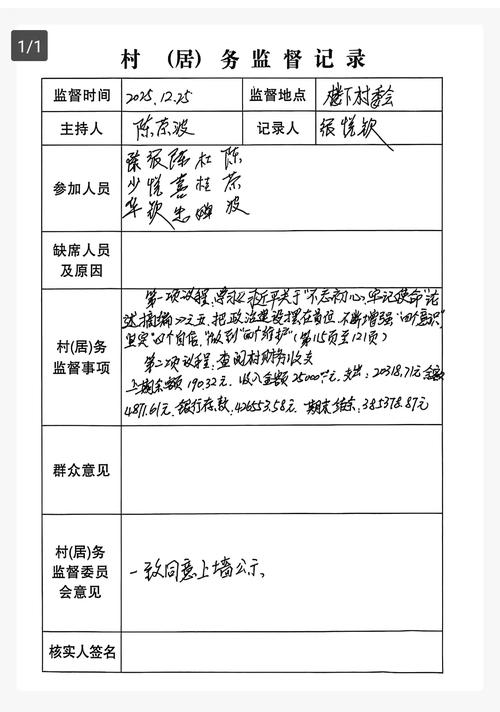 1/1
村 (居) 务 监 督 记 录
监督时间 2025.12.25 监督地点 楼下村委会
主持人 陈荣波 记录人 张悦钦
参加人员
张 陈 杜 陈
少 悦 喜 桂 荣
华 钦 忠 婵 波
缺席人员
及原因
村(居)务
监督事项
第一项议程:学习习近平关于"不忘初心、牢记使命"论
述摘编 把政治建设摆在首位,不断增强"四个意识"
坚定"四个自信"做到"两个维护"(第115页至121页)
第二项议程:查阅村财务收支
上期余额190.32元.收入金额25000元.支出:20318.71元余额
4871.61元.银行存款:426553.58元.期末结余:385378.87元
群众意见
村(居)务
监督委员
会意见
一致同意上墙公示.
核实人签名